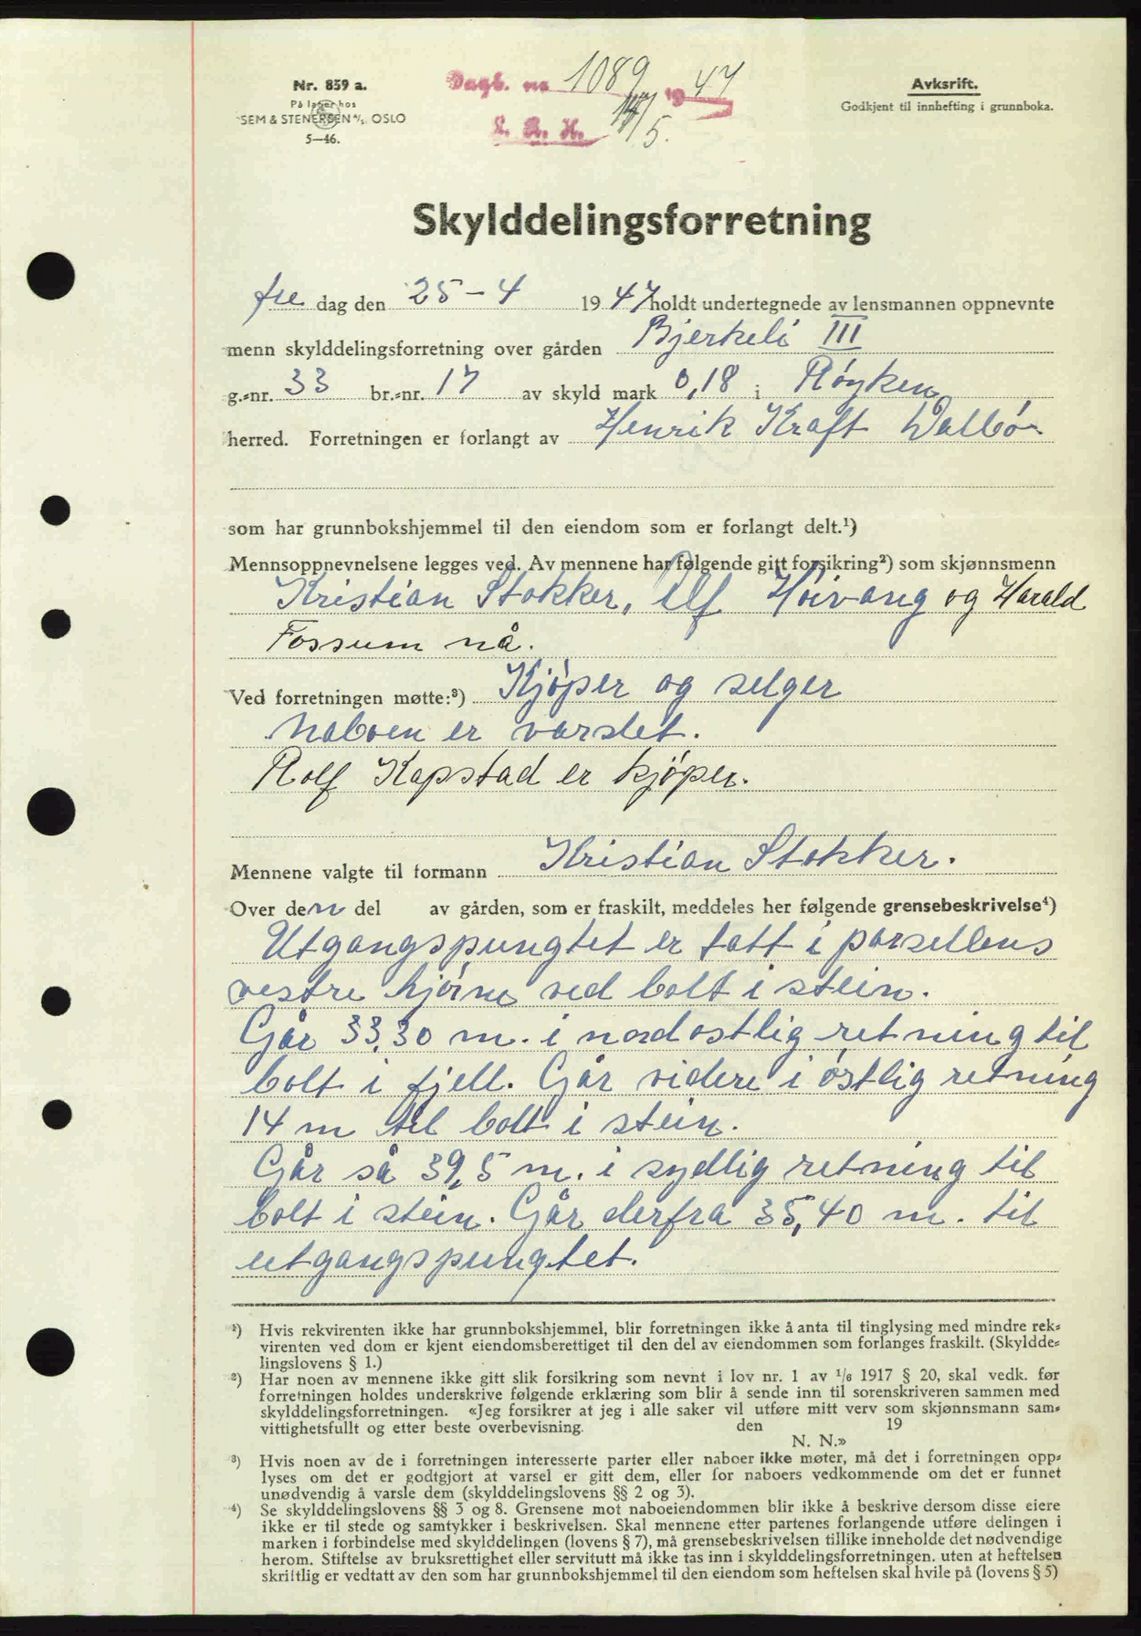 Nr. 859 a.
På lager hos
SEM & STENERSEN A/S, OSLO
5—46.
Dagb. nr. 1089 1947
L. R. H. 14/5.
Avksrift.
Godkjent til innhefting i grunnboka.
Skylddelingsforretning
fre dag den 25-4 1947 holdt undertegnede av lensmannen oppnevnte
menn skylddelingsforretning over gården Bjerkeli III
g.-nr. 33 br.-nr. 17 av skyld mark 0,18 i Røyken
herred. Forretningen er forlangt av Henrik Kraft Walbö
som har grunnbokshjemmel til den eiendom som er forlangt delt.¹)
Mennsoppnevnelsene legges ved. Av mennene har følgende gitt forsikring²) som skjønnsmenn
Kristian Stokker, Alf Höivang og Harald
Fossum nå.
Ved forretningen møtte:³) Kjöper og selger
Naboen er varslet.
Rolf Kapstad er kjöper.
Mennene valgte til formann Kristian Stokker.
Over den del av gården, som er fraskilt, meddeles her følgende grensebeskrivelse⁴)
Utgangspungtet er tatt i parsellens
vestre hjörne ved bolt i stein.
Går 33,30 m. i nordostlig retning til
bolt i fjell. Går videre i östlig retning
14 m til bolt i stein.
Går så 39,5 m. i sydlig retning til
bolt i stein. Går derfra 35,40 m. til
utgangspungtet.
¹) Hvis rekvirenten ikke har grunnbokshjemmel, blir forretningen ikke å anta til tinglysing med mindre rek-
virenten ved dom er kjent eiendomsberettiget til den del av eiendommen som forlanges fraskilt. (Skyldde-
lingslovens § 1.)
²) Har noen av mennene ikke gitt slik forsikring som nevnt i lov nr. 1 av 1/6 1917 § 20, skal vedk. før
forretningen holdes underskrive følgende erklæring som blir å sende inn til sorenskriveren sammen med
skylddelingsforretningen. «Jeg forsikrer at jeg i alle saker vil utføre mitt verv som skjønnsmann sam-
vittighetsfullt og etter beste overbevisning. den 19
N. N.»
³) Hvis noen av de i forretningen interesserte parter eller naboer ikke møter, må det i forretningen opp-
lyses om det er godtgjort at varsel er gitt dem, eller for naboers vedkommende om det er funnet
unødvendig å varsle dem (skylddelingslovens §§ 2 og 3).
⁴) Se skylddelingslovens §§ 3 og 8. Grensene mot naboeiendommen blir ikke å beskrive dersom disse eiere
ikke er til stede og samtykker i beskrivelsen. Skal mennene etter partenes forlangende utføre delingen i
marken i forbindelse med skylddelingen (lovens § 7), må grensebeskrivelsen tillike inneholde det nødvendige
herom. Stiftelse av bruksrettighet eller servitutt må ikke tas inn i skylddelingsforretningen. uten at heftelsen
skriftlig er vedtatt av den som har grunnbokshjemmel til den eiendom som heftelsen skal hvile på (lovens § 5)